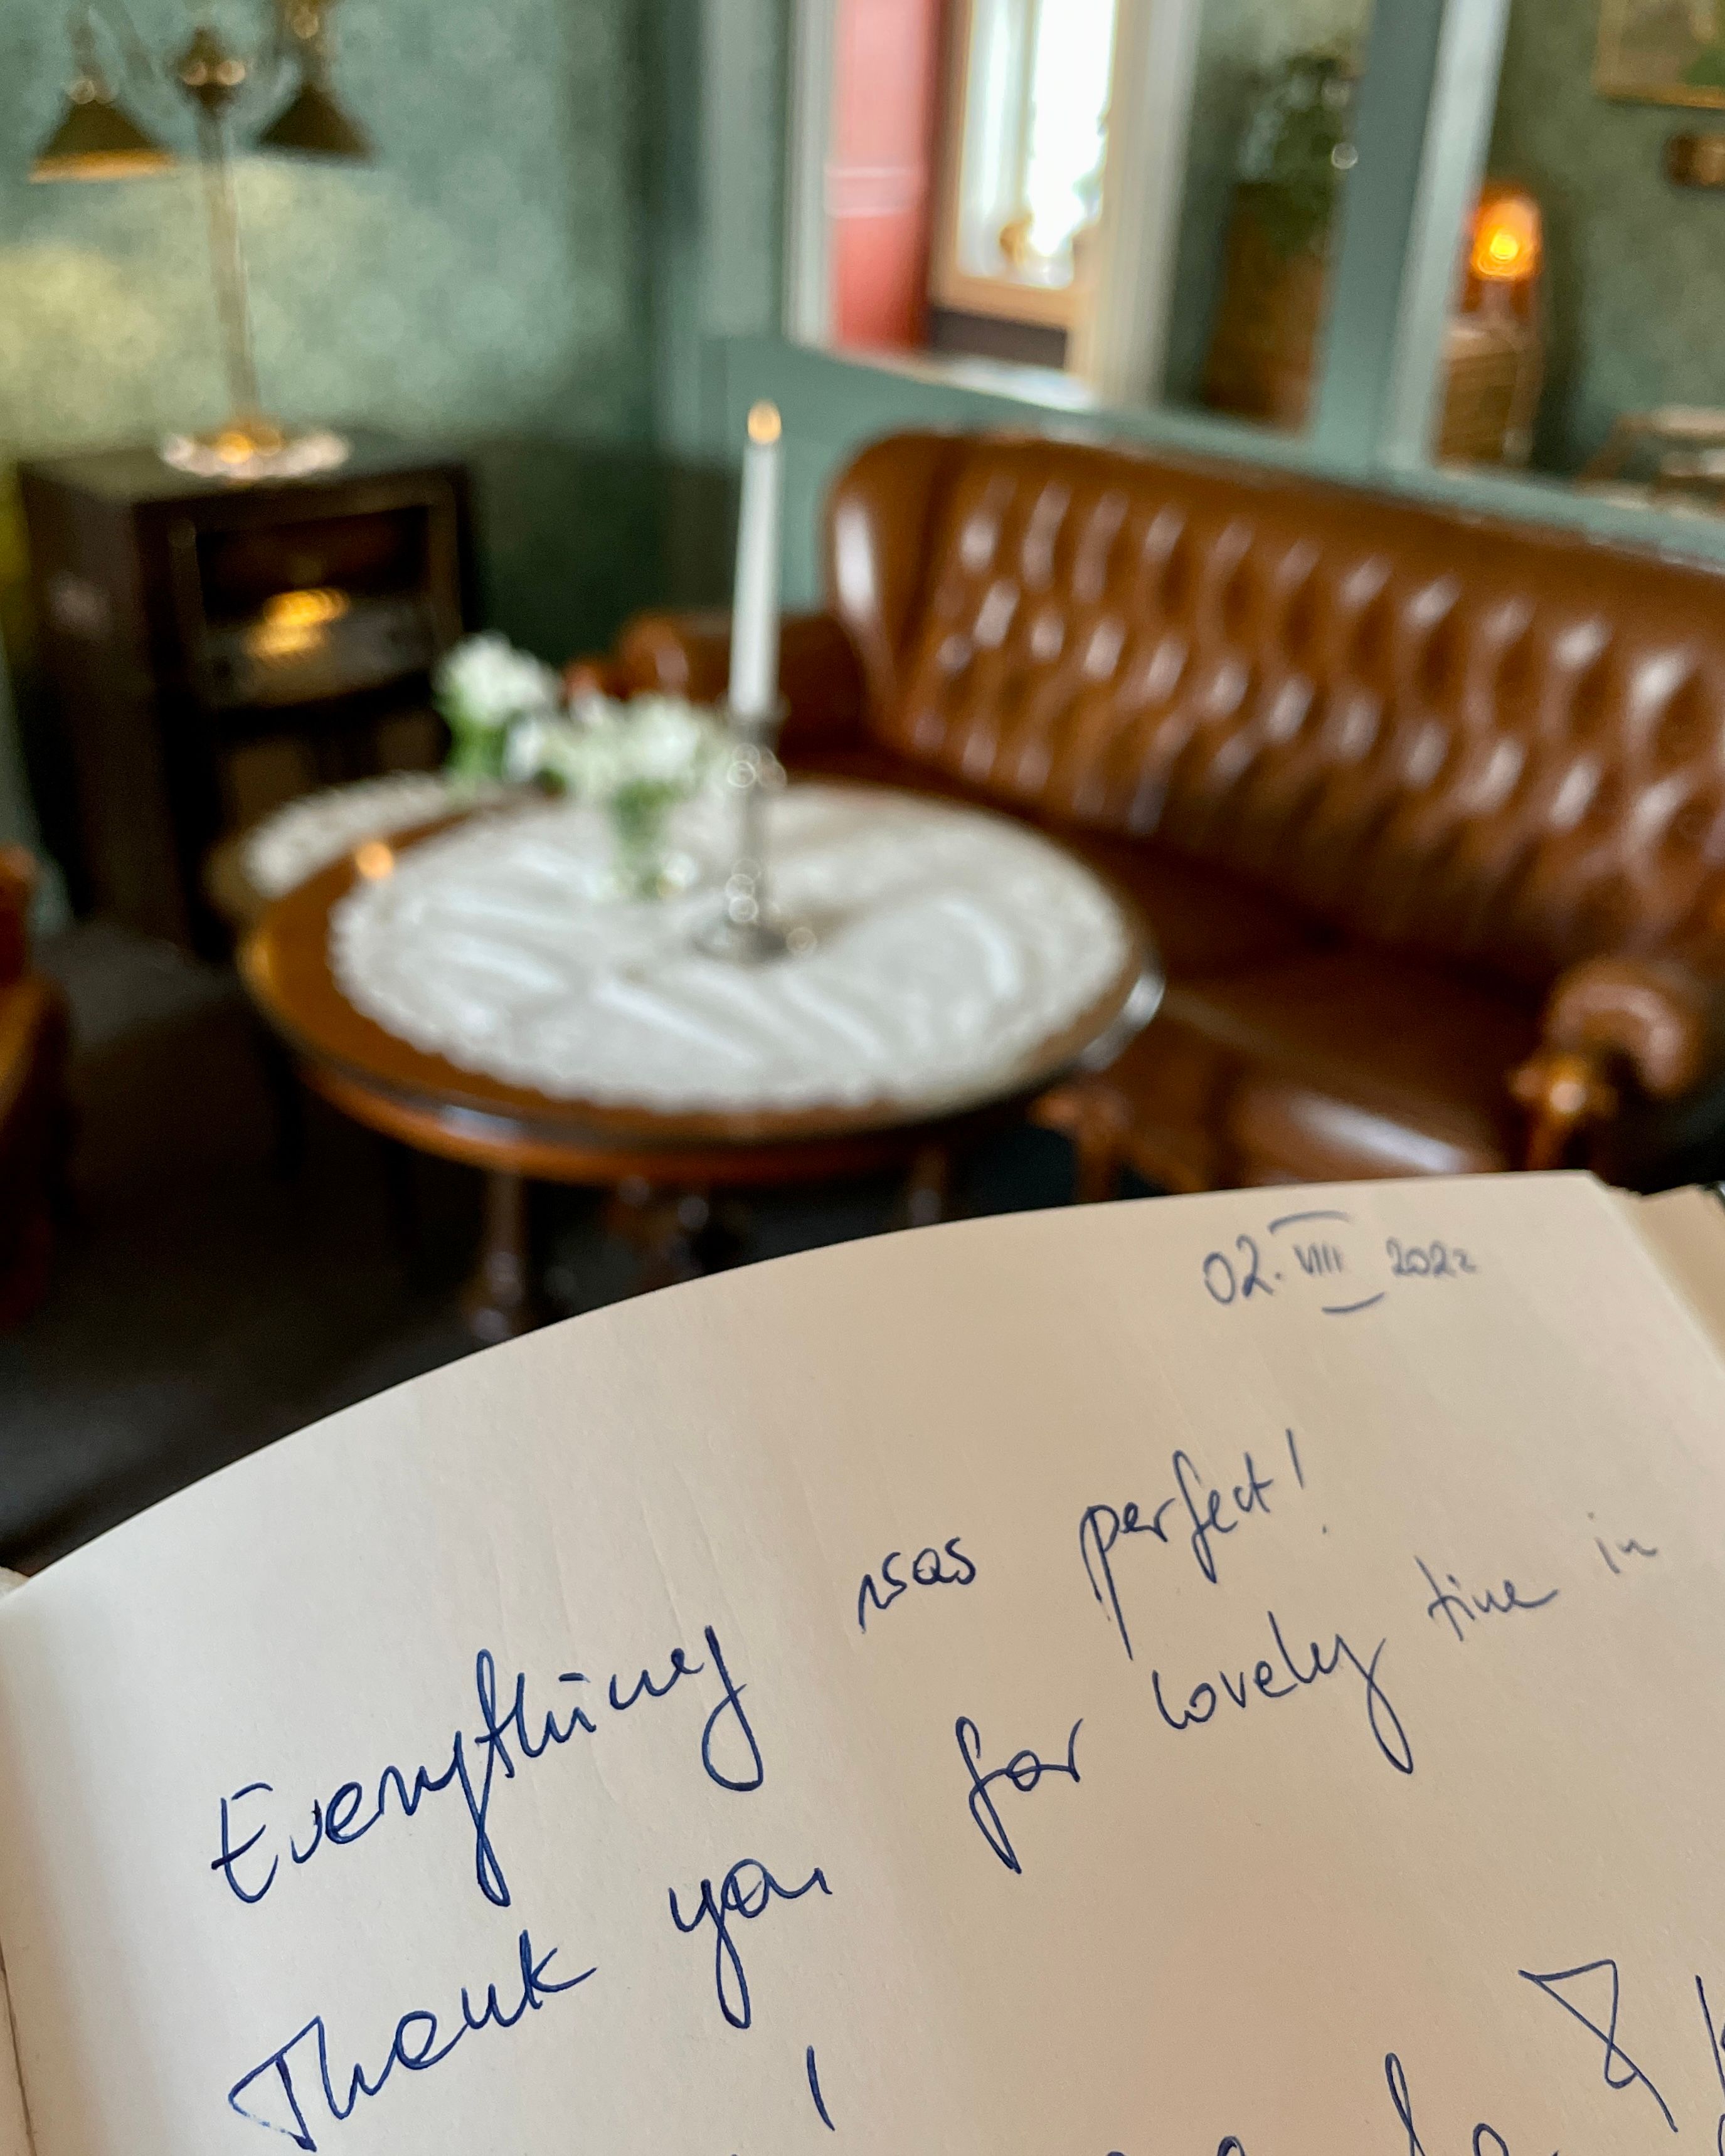 02. VIII 2022
Everything was perfect!
Thank you for lovely time in